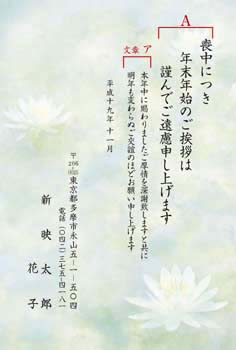 A
喪中につき
年末年始のご挨拶は
謹んでご遠慮申し上げます
文章 ア
本年中に賜わりましたご厚情を深謝致しますと共に
明年も変わらぬご交誼のほどお願い申し上げます
平成十九年十一月
東京都多摩市永山五-一-五〇四
電話(〇四二)三七五-四一八一
新 映太郎
花子